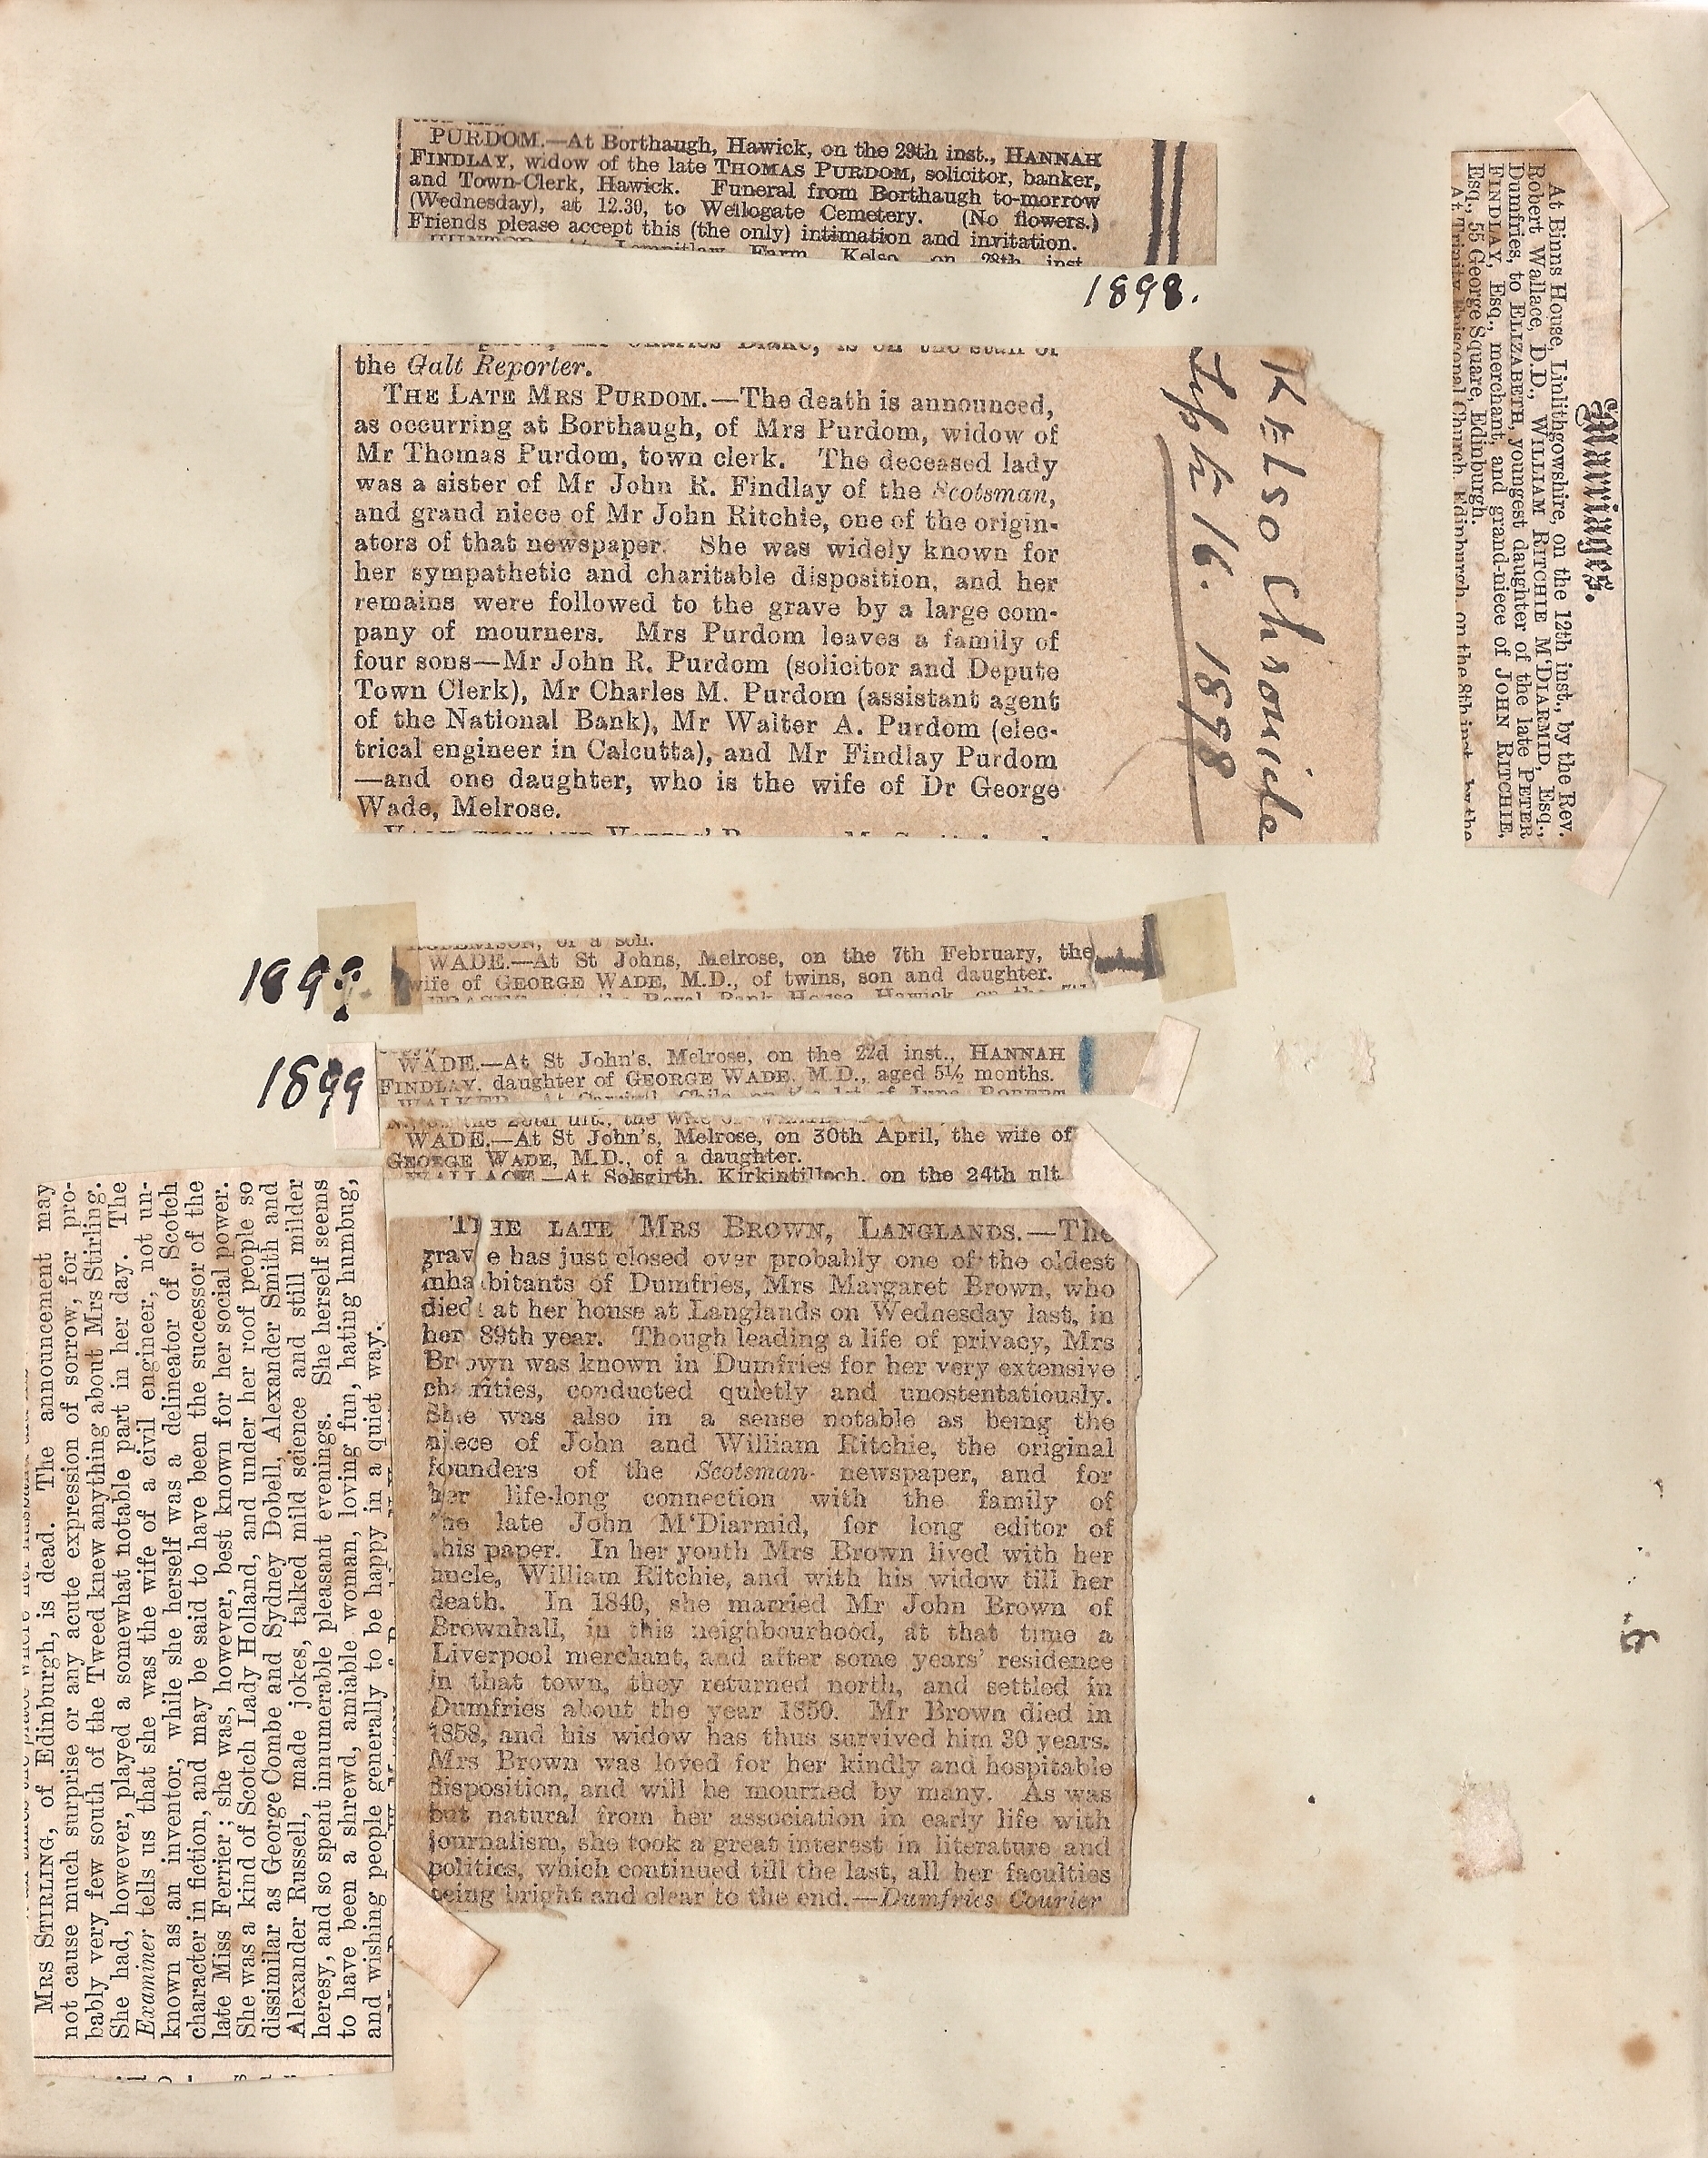 PURDOM.—At Borthaugh, Hawick, on the 29th inst., HANNAH
FINDLAY, widow of the late THOMAS PURDOM, solicitor, banker,
and Town-Clerk, Hawick. Funeral from Borthaugh to-morrow
(Wednesday), at 12.30, to Wellogate Cemetery. (No flowers.)
Friends please accept this (the only) intimation and invitation.
Farm, Kelso, on 28th inst.
1898.
Marriages.
At Binns House, Linlithgowshire, on the 12th inst., by the Rev.
Robert Wallace, D.D., WILLIAM RITCHIE M'DIARMID, Esq.,
Dumfries, to ELIZABETH, youngest daughter of the late PETER
FINDLAY, Esq., merchant, and grand-niece of JOHN RITCHIE,
Esq., 55 George Square, Edinburgh.
At Trinity Episcopal Church, Edinburgh, on the 8th inst., by the
the Galt Reporter.
THE LATE MRS PURDOM.—The death is announced,
as occurring at Borthaugh, of Mrs Purdom, widow of
Mr Thomas Purdom, town clerk. The deceased lady
was a sister of Mr John R. Findlay of the Scotsman,
and grand niece of Mr John Ritchie, one of the origin-
ators of that newspaper. She was widely known for
her sympathetic and charitable disposition, and her
remains were followed to the grave by a large com-
pany of mourners. Mrs Purdom leaves a family of
four sons—Mr John R. Purdom (solicitor and Depute
Town Clerk), Mr Charles M. Purdom (assistant agent
of the National Bank), Mr Walter A. Purdom (elec-
trical engineer in Calcutta), and Mr Findlay Purdom
—and one daughter, who is the wife of Dr George
Wade, Melrose.
Kelso Chronicle
16. 1898
of a son.
WADE.—At St Johns, Melrose, on the 7th February, the
wife of GEORGE WADE, M.D., of twins, son and daughter.
Royal Bank House, Hawick, on the 7th
1899
WADE.—At St John's, Melrose, on the 22d inst., HANNAH
FINDLAY, daughter of GEORGE WADE, M.D., aged 5½ months.
1899
WADE.—At St John's, Melrose, on 30th April, the wife of
GEORGE WADE, M.D., of a daughter.
WALLACE.—At Solsgirth, Kirkintilloch, on the 24th ult.
MRS STIRLING, of Edinburgh, is dead. The announcement may
not cause much surprise or any acute expression of sorrow, for pro-
bably very few south of the Tweed knew anything about Mrs Stirling.
She had, however, played a somewhat notable part in her day. The
Examiner tells us that she was the wife of a civil engineer, not un-
known as an inventor, while she herself was a delineator of Scotch
character in fiction, and may be said to have been the successor of the
late Miss Ferrier; she was, however, best known for her social power.
She was a kind of Scotch Lady Holland, and under her roof people so
dissimilar as George Combe and Sydney Dobell, Alexander Smith and
Alexander Russell, made jokes, talked mild science and still milder
heresy, and so spent innumerable pleasant evenings. She herself seems
to have been a shrewd, amiable woman, loving fun, hating humbug,
and wishing people generally to be happy in a quiet way.
THE LATE MRS BROWN, LANGLANDS.—The
grave has just closed over probably one of the oldest
inhabitants of Dumfries, Mrs Margaret Brown, who
died at her house at Langlands on Wednesday last, in
her 89th year. Though leading a life of privacy, Mrs
Brown was known in Dumfries for her very extensive
charities, conducted quietly and unostentatiously.
She was also in a sense notable as being the
niece of John and William Ritchie, the original
founders of the Scotsman newspaper, and for
her life-long connection with the family of
the late John M'Diarmid, for long editor of
this paper. In her youth Mrs Brown lived with her
uncle, William Ritchie, and with his widow till her
death. In 1840, she married Mr John Brown of
Brownhall, in this neighbourhood, at that time a
Liverpool merchant, and after some years' residence
in that town, they returned north, and settled in
Dumfries about the year 1850. Mr Brown died in
1858, and his widow has thus survived him 30 years.
Mrs Brown was loved for her kindly and hospitable
disposition, and will be mourned by many. As was
but natural from her association in early life with
journalism, she took a great interest in literature and
politics, which continued till the last, all her faculties
being bright and clear to the end.—Dumfries Courier